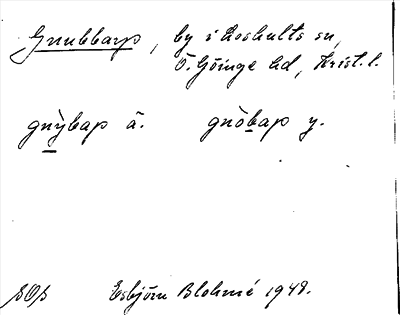 Gnubbarp, by i Loshults sn,
Ö. Göinge hd, Krist. l.
gnỳbap ä. gnòbap y.
SOS Esbjörn Blohmé 1948.